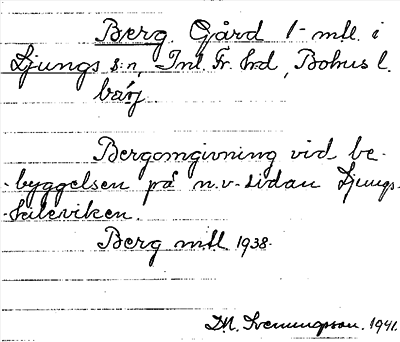 Berg. Gård 1-mtl. i
Ljungs s:n, Inl. Fr. hd, Bohus l.
bárj
Bergomgivning vid be-
-byggelsen på n.v-sidan Ljungs-
-kileviken.
Berg mtl 1938.
D.N. Svenungsson. 1941.